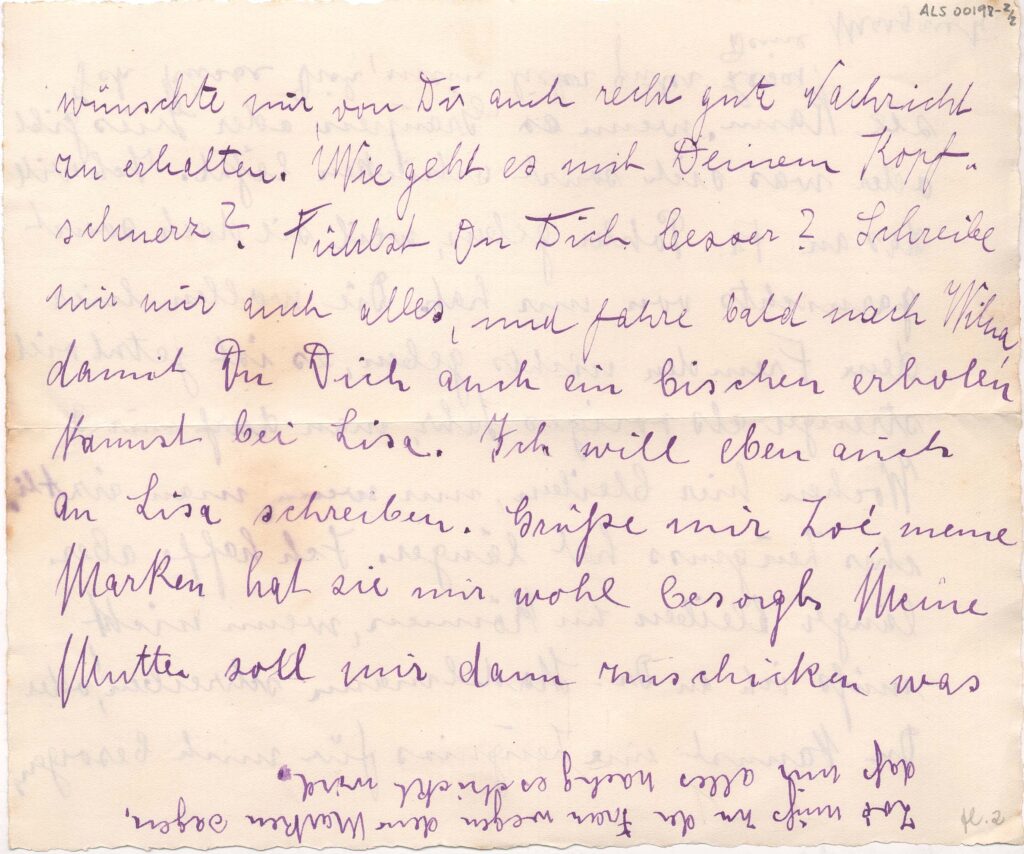 ALS 00198-2/2
wünschte mir, von Dir auch recht gute Nachricht
zu erhalten. Wie geht es mit Deinem Kopf-
schmerz? Fühlst Du Dich besser? Schreibe
mir nur auch alles, und fahre bald nach Wilna,
damit Du Dich auch ein bischen erholen
kannst bei Lisa. Ich will eben auch
an Lisa schreiben. Grüße mir Zoé, meine
Marken hat sie mir wohl besorgt. Meine
Mutter soll mir dann zuschicken was
Zoé muß zu der Frau wegen den Marken sagen,
daß mir alles nachgeschickt wird.